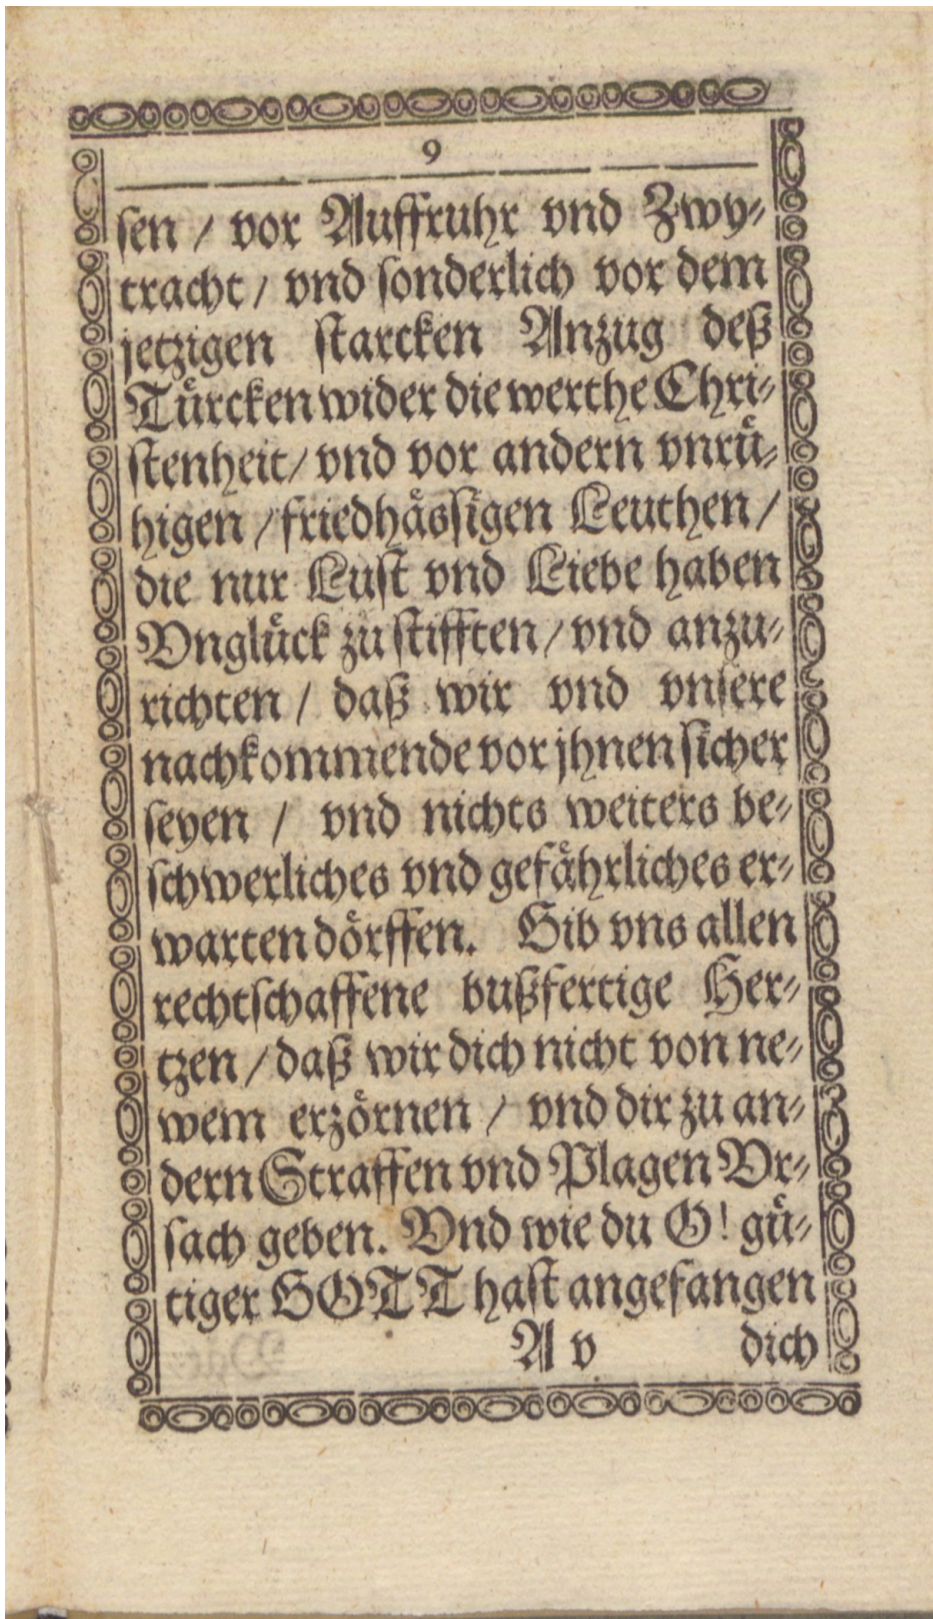 9
sen / vor Auffruhr vnd Zwy⸗
tracht / vnd sonderlich vor dem
jetzigen starcken Anzug deß
Türcken wider die werthe Chri⸗
stenheit / vnd vor andern vnrü⸗
higen / friedhässigen Leuthen /
die nur Lust vnd Liebe haben
Vnglück zu stifften / vnd anzu⸗
richten / daß wir vnd vnsere
nachkommende vor jhnen sicher
seyen / vnd nichts weiters be⸗
schwerliches vnd gefährliches er⸗
warten dörffen. Gib vns allen
rechtschaffene bußfertige Her⸗
tzen / daß wir dich nicht von ne⸗
wem erzörnen / vnd dir zu an⸗
dern Straffen vnd Plagen Vr⸗
sach geben. Vnd wie du O! gü⸗
tiger GOTT hast angefangen
A v dich